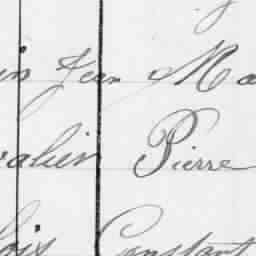 in Jean Ma
valier Pierre
lois Constant